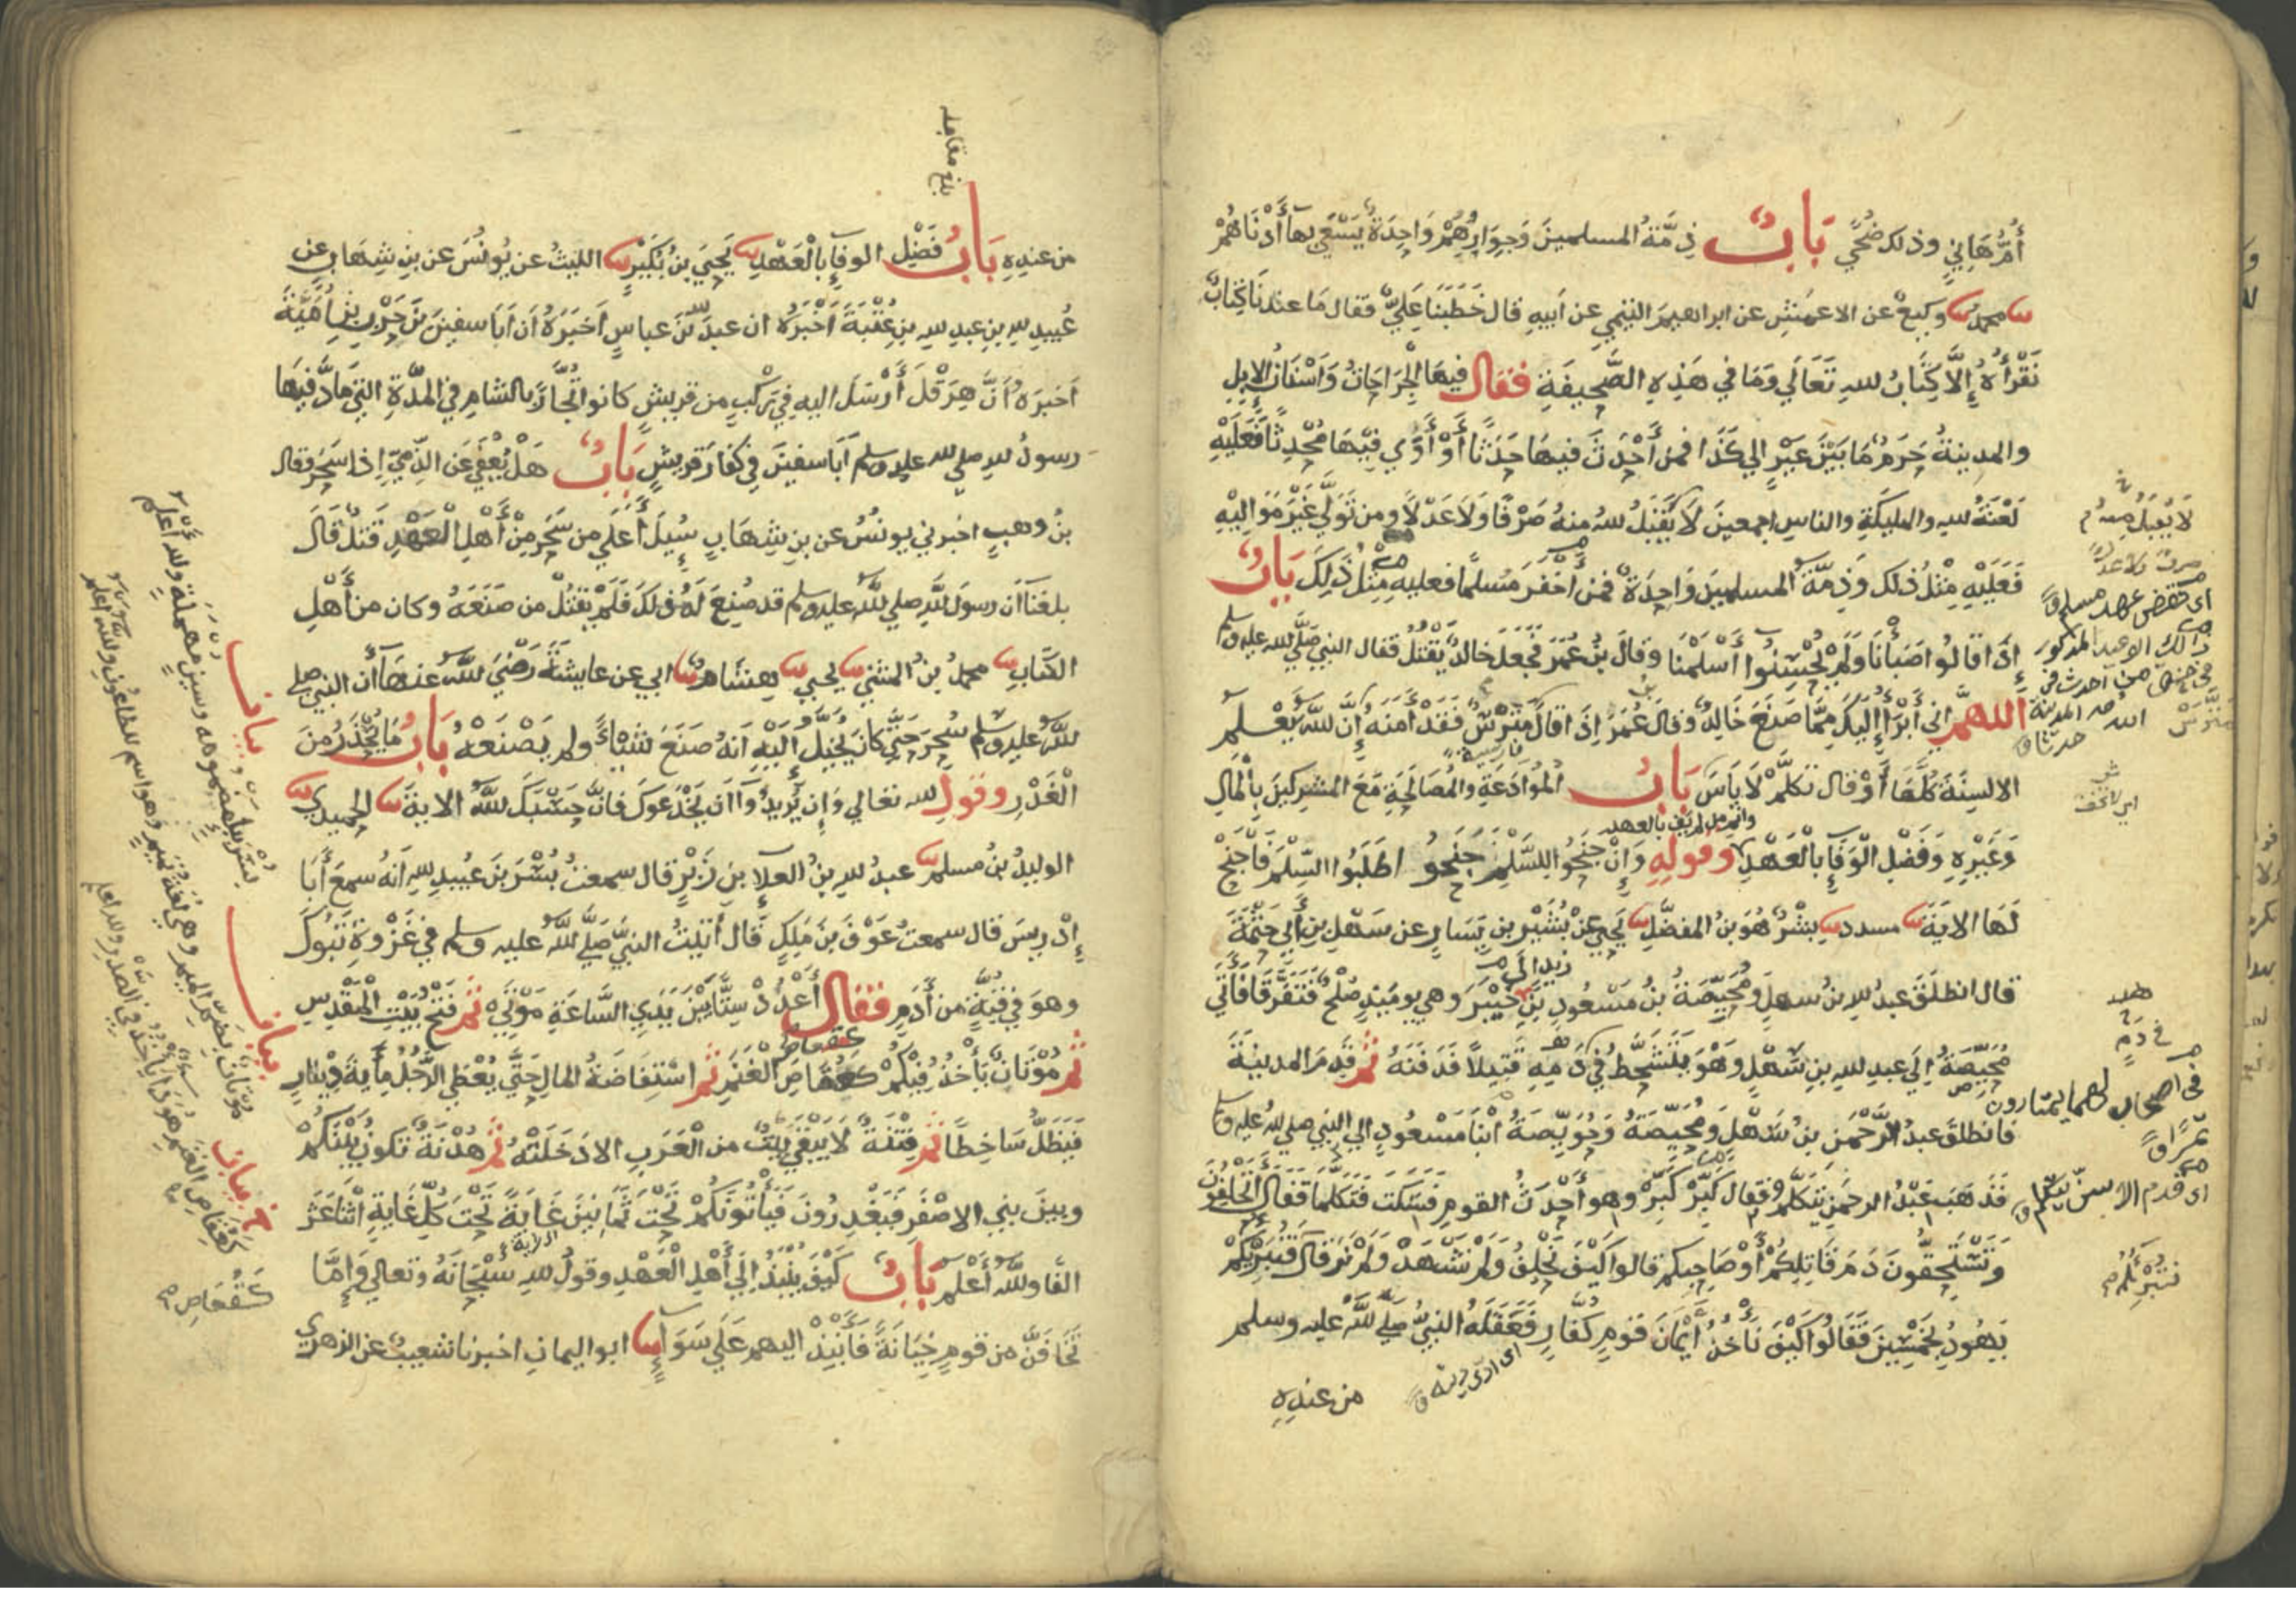 أُمُّ هَانِيٍ وذلك ضُحًي بَابُ ذِمَّةُ المسلمينَ وَجِوَارُهُمْ وَاحِدَةٌ يَسْعَي بِهَا أَدْنَاهُمْ
محمد وكيعٌ عن الاعمش عن ابراهيم التيمي عن أبيهِ قال خَطَبَنَا عَلِيٌّ فقال مَا عندنَا كِتَابٌ
نَقْرَأُهُ إِلَّا كِتَابُ للهِ تَعَالَي وَمَا في هَذِهِ الصَّحِيفَةِ فقال فيهَا الْجِرَاحَاتُ وَأَسْنَانُ الإبلِ
والمدينةُ حَرَمٌ مَا بَيْنَ عَيْرٍ الي كَذَا فمن أَحْدَثَ فيهَا حَدَثًا أَوْ أَوَي فِيْهَا مُحْدِثًا فَعَلَيْهِ
لَعْنَةُ للهِ والمليكَةِ والناسِ اجمعينَ لَا يُقْبَلُ منهُ صَرْفًا وَلَا عَدْلًا ومن تَوَلَّي غَيْرَ مَوَالِيْهِ
فَعَلَيْهِ مِثْلُ ذلك وَذِمَّةُ المسلمينَ وَاحِدَةٌ فمن أَخْفَرَ مُسلمًا فعليهِ مِثْلُ ذَلِكَ بَابُ
إِذَا قَالُوا صَبَأْنَا وَلَمْ يُحْسِنُوا أَسْلَمْنَا وقالَ بنُ عُمَرَ فَجَعَلَ خالدٌ يَقْتُلُ فقال النبي صَلَّي لله عليه وسلم
اللهمَّ اني أَبْرَأُ إِلَيْكَ مِمَّا صَنَعَ خَالِدٌ وقال عُمَرُ إِذَا قَالَ مَتْرَسْ فَقَدْ أَمَنَهُ إِنَّ للهَ يَعْلَمُ
الالسِنَةَ كُلَّهَا أَوْ قال تكلَّمْ لَا بَاسَ بَابُ الْمُوَادَعَةِ والْمُصَالَحَةِ مَعَ المشركينَ بِالْمَالِ
وَغَيْرِهِ وَفَضْلِ الْوَفَآءِ بالْعَهْدِ وقولِهِ وَإِنْ جَنَحُوا للسَّلْمِ جَنَحُو اطَلَبُوا السِّلْمَ فَاجْنَحْ
لَهَا الايَةَ مسدد بِشْرٌ هُوَ بنُ المفضَّلِ يحيي عنْ بُشَيْرِ بنِ يَسَارٍ عن سَهْلِ بنِ أَبي حَثْمَةَ
قال انطلَقَ عبدُ للهِ بنُ سهلٍ وَمُحَيِّصَةُ بنُ مَسْعُودِ بنِ زيدٍ الي خَيْبَرَ وهي يوميذٍ صُلْحٌ فَتَفَرَّقَا فَأَتَي
مُحَيِّصَةُ إِلَي عبدِ للهِ بنِ سَهْلٍ وَهْوَ يَتَشَحَّطُ في دَمِهِ قَتِيلًا فَدَفَنَهُ ثُمَّ قَدِمَ المدينَةَ
فانطلقَ عبدُ الرَّحْمَنِ بنُ سَهْلٍ وَمُحَيِّصَةُ وَحُوَيِّصَةُ ابْنَا مَسْعُودٍ الي النبي صلي لله عليه وسلم
فَذَهَبَ عَبْدُ الرحمنِ يَتَكَلَّمُ فقال كَبِّرْ كَبِّرْ وهو أَحْدَثُ القومِ فَسَكَتَ فَتَكَلَّمَا فَقَالَ أَتَحْلِفُونَ
وَتَسْتَحِقُّونَ دَمَ قَاتِلِكُمْ أَوْ صَاحِبِكم قالوا كَيْفَ نَحْلِفُ وَلَمْ نَشْهَدْ وَلَمْ نَرَ قَالَ فَتُبْرِيكُمْ
يَهُودُ بِخَمْسِينَ فَقَالُوا كَيْفَ نَأْخُذُ أَيْمَانَ قومٍ كُفَّارٍ فَعَقَلَهُ النبيُّ صَلَّي للهُ عليه وسلم
من عندِهِ
لَا يُقبَلُ مِنهُ
صرفٌ ولا عدلٌ
اي نقض عهد مسلم
فارسية
ومن لم يف بالعهد
هد
في دمٍ
اي قدم الاسن يتكلم
تُبْرِئُكُم
اي ادي ديته
بلغ مقابله
من عندِهِ بَابُ فَضْلِ الوفآءِ بالْعَهْدِ يَحيَي بنُ بُكَيْرٍ الليثُ عن يُونُسَ عن بنِ شِهَابٍ عن
عُبيدِ للهِ بنِ عبدِ للهِ بنِ عُتْبَةَ أَخْبَرَهُ ان عبدَ للهِ بنَ عباسٍ أَخبَرَهُ أن أبَا سفينَ بنَ حَرْبِ بنِ أُمَيَّةَ
أَخبَرَهُ أنَّ هِرَقْلَ أَرْسَلَ اليه في رَكْبٍ من قريشٍ كانوا تُجَّارًا بالشامِ في المدَّةِ التي مَادَّ فيهَا
رسولُ للهِ صلي لله عليه وسلم أَبَا سفينَ في كفارِ قريشٍ بَابُ هَلْ يُعْفَي عَنِ الذِّمِيِّ إِذَا سَحَرَ وقال
بنُ وهبٍ اخبرني يونُسُ عن بنِ شِهَابٍ سُيلَ أَعَلَي من سَحَرَ مِنْ أَهْلِ الْعَهْدِ قَتْلٌ قَالَ
بلغنَا أن رسولَ للهِ صلي لله عليه وسلم قد صُنِعَ لَهُ ذلك فَلَمْ يَقْتُلْ من صَنَعَهُ وكان من أَهْلِ
الكِتَابِ محمدُ بنُ المثني يحيي هِشَامٌ ابي عن عايشةَ رَضِيَ للهُ عنهَا أن النبي صلي
للهُ عليه وسلم سُحِرَ حَتَّي كَانَ يُخَيَّلُ إِلَيْهِ أَنهُ صَنَعَ شَيْئًا ولم يَصْنَعْهُ بَابُ مَا يُحْذَرُ مِنَ
الْغَدْرِ وقولِ للهِ تعالي وَإِن يُرِيدُوآ أَن يَخْدَعوكَ فَانَّ حَسْبَكَ للهُ الايةَ الحميدي
الوليدُ بنُ مسلمٍ عبدُ للهِ بنُ العلآءِ بنِ زَبْرٍ قال سمعتُ بُسْرَ بنَ عُبيدِ للهِ أَنهُ سمعَ أَبَا
إِدْرِيسَ قال سمعتُ عَوْفَ بنَ مَلِكٍ قَالَ أَتيتُ النبيَّ صَلَّي للهُ عليه وسلم في غَزْوةِ تَبُوكَ
وهوَ في قُبَّةٍ من أَدَمٍ فقال أُعْدُدْ سِتًّا بَيْنَ يَدَيِ السَّاعَةِ مَوْتِي ثم فَتْحُ بَيْتِ الْمَقْدِسِ
ثم مُوْتَانٌ يَأْخُذُ فِيْكُمْ كَقُعَاصِ الْغَنَمِ ثم اسْتِفَاضَةُ المالِ حَتَّي يُعْطَي الرَّجُلُ مِايَةَ دِينَارٍ
فَيَظَلُّ سَاخِطًا ثم فِتْنَةٌ لَا يَبْقَي بَيْتٌ من الْعَرَبِ الا دَخَلَتْهُ ثم هُدْنَةٌ تكونُ بَيْنَكُمْ
وبينَ بني الاصْفَرِ فَيَغْدِرُونَ فَيَأْتُونَكُمْ تَحْتَ ثَمَانِينَ غَايَةً تَحْتَ كُلِّ غَايَةٍ اثْنَا عَشَرَ
الفًا وللهُ أَعْلَمُ بَابُ كَيْفَ يُنْبَذُ إِلَي أَهْلِ الْعَهْدِ وقولُ للهِ سُبْحَانَهُ وتعالي وَإِمَّا
تَخَافَنَّ من قومٍ خِيَانَةً فَانْبِذْ اليهم عَلَي سَوَآءٍ ابو اليمانِ اخبرنا شعيبٌ عن الزهري
الراية
كَقُعَاصِ